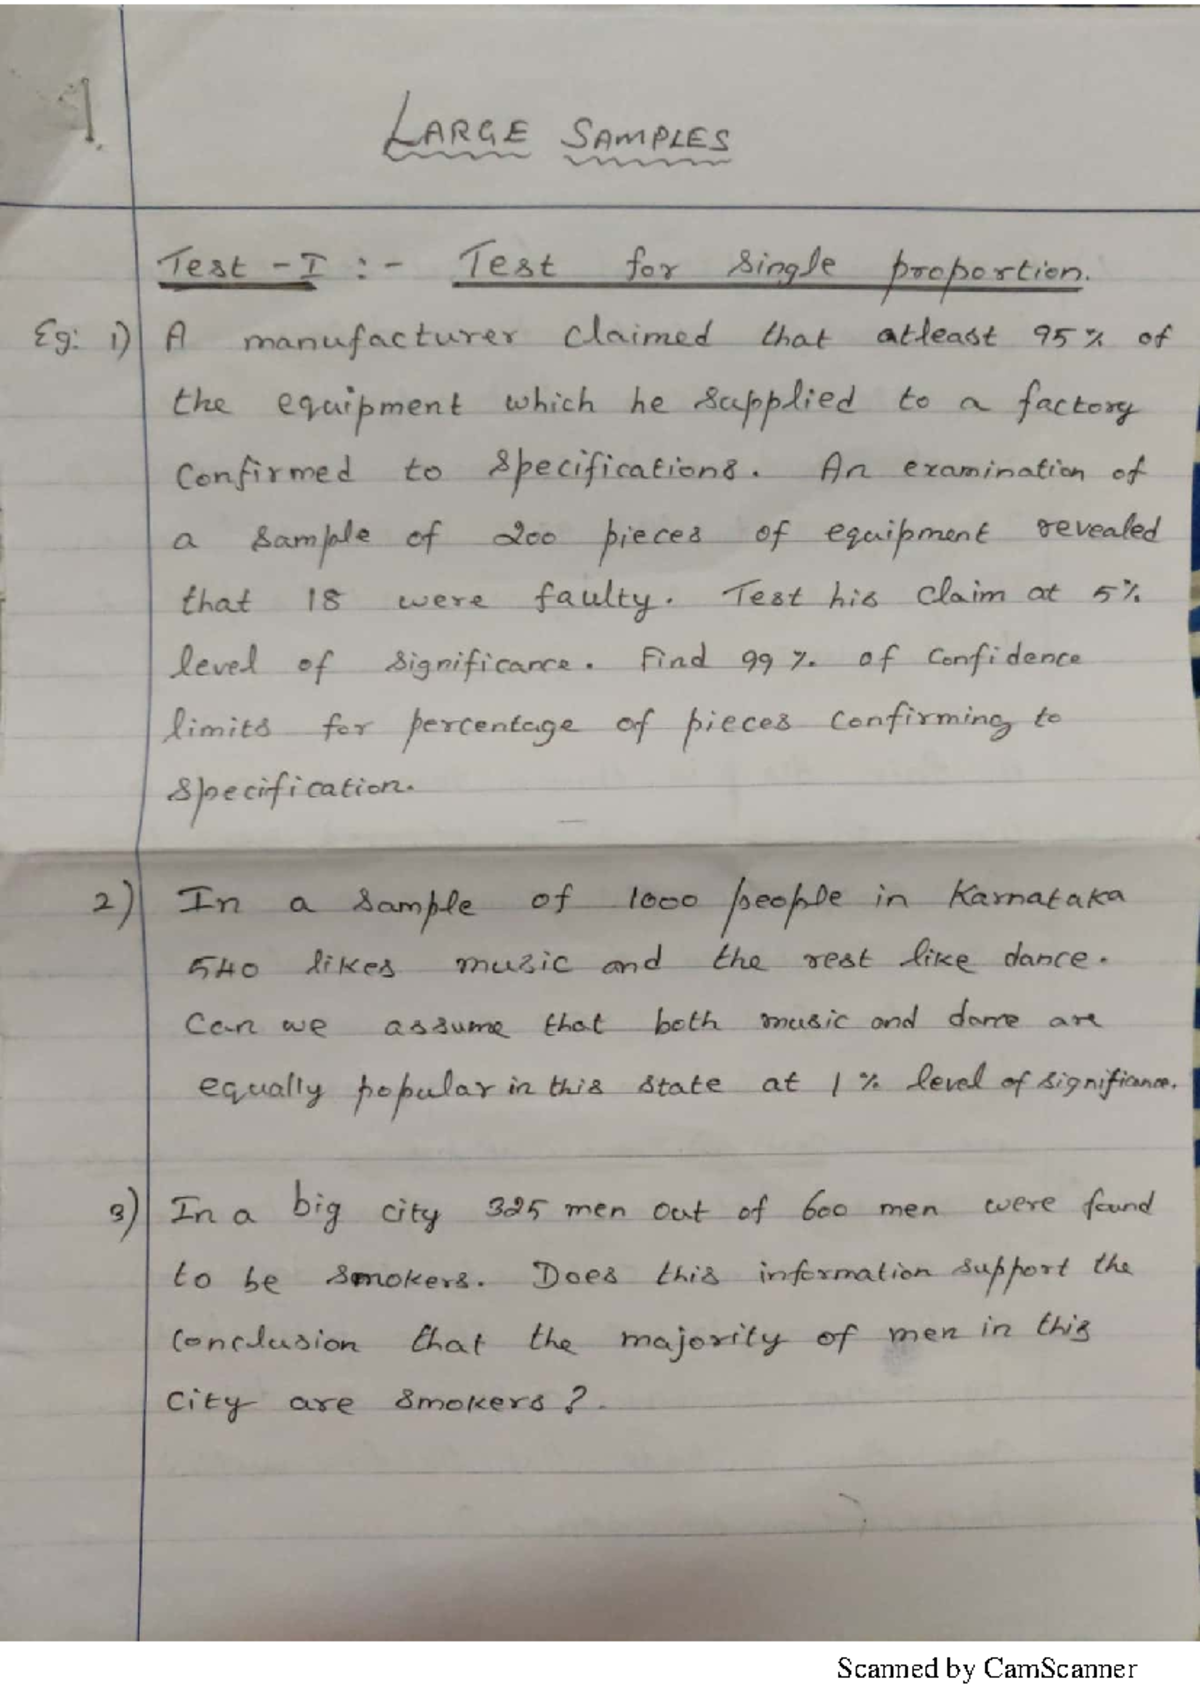 1.
LARGE SAMPLES
Test - I :- Test for single proportion.
Eg: 1) A manufacturer claimed that atleast 95% of
the equipment which he supplied to a factory
confirmed to specifications. An examination of
a sample of 200 pieces of equipment revealed
that 18 were faulty. Test his claim at 5%
level of significance. Find 99%. of confidence
limits for percentage of pieces confirming to
specification.
2) In a sample of 1000 people in Karnataka
540 likes music and the rest like dance.
Can we assume that both music and dance are
equally popular in this state at 1% level of significance.
3) In a big city 325 men out of 600 men were found
to be smokers. Does this information support the
conclusion that the majority of men in this
city are smokers?.
Scanned by CamScanner